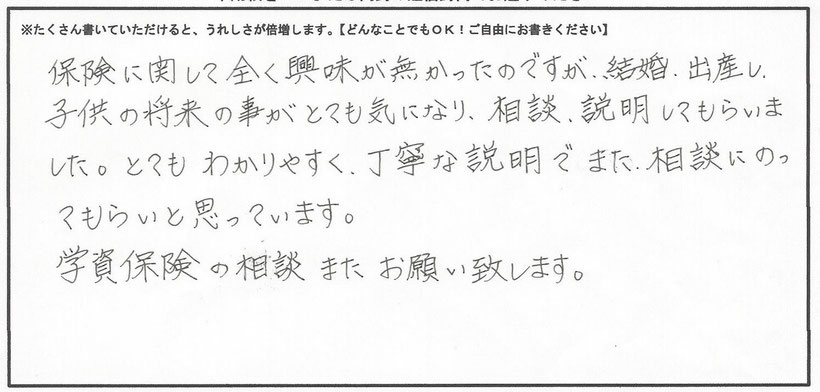 ※たくさん書いていただけると、うれしさが倍増します。【どんなことでもOK！ご自由にお書きください】
保険に関して全く興味が無かったのですが、結婚、出産し、
子供の将来の事がとても気になり、相談、説明してもらいま
した。とてもわかりやすく、丁寧な説明でまた、相談にのっ
てもらいと思っています。
学資保険の相談またお願い致します。